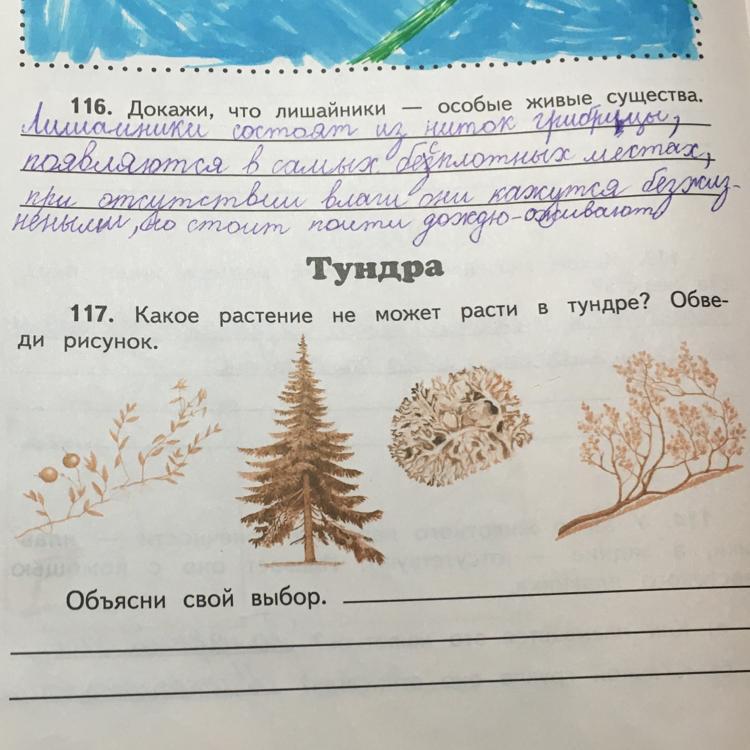 116. Докажи, что лишайники — особые живые существа.
Лишайники состоят из ниток грибницы,
появляются в самых бесплотных местах,
при отсутствии влаги они кажутся безжиз-
неными, но стоит пойти дождю-оживают
Тундра
117. Какое растение не может расти в тундре? Обве-
ди рисунок.
Объясни свой выбор.